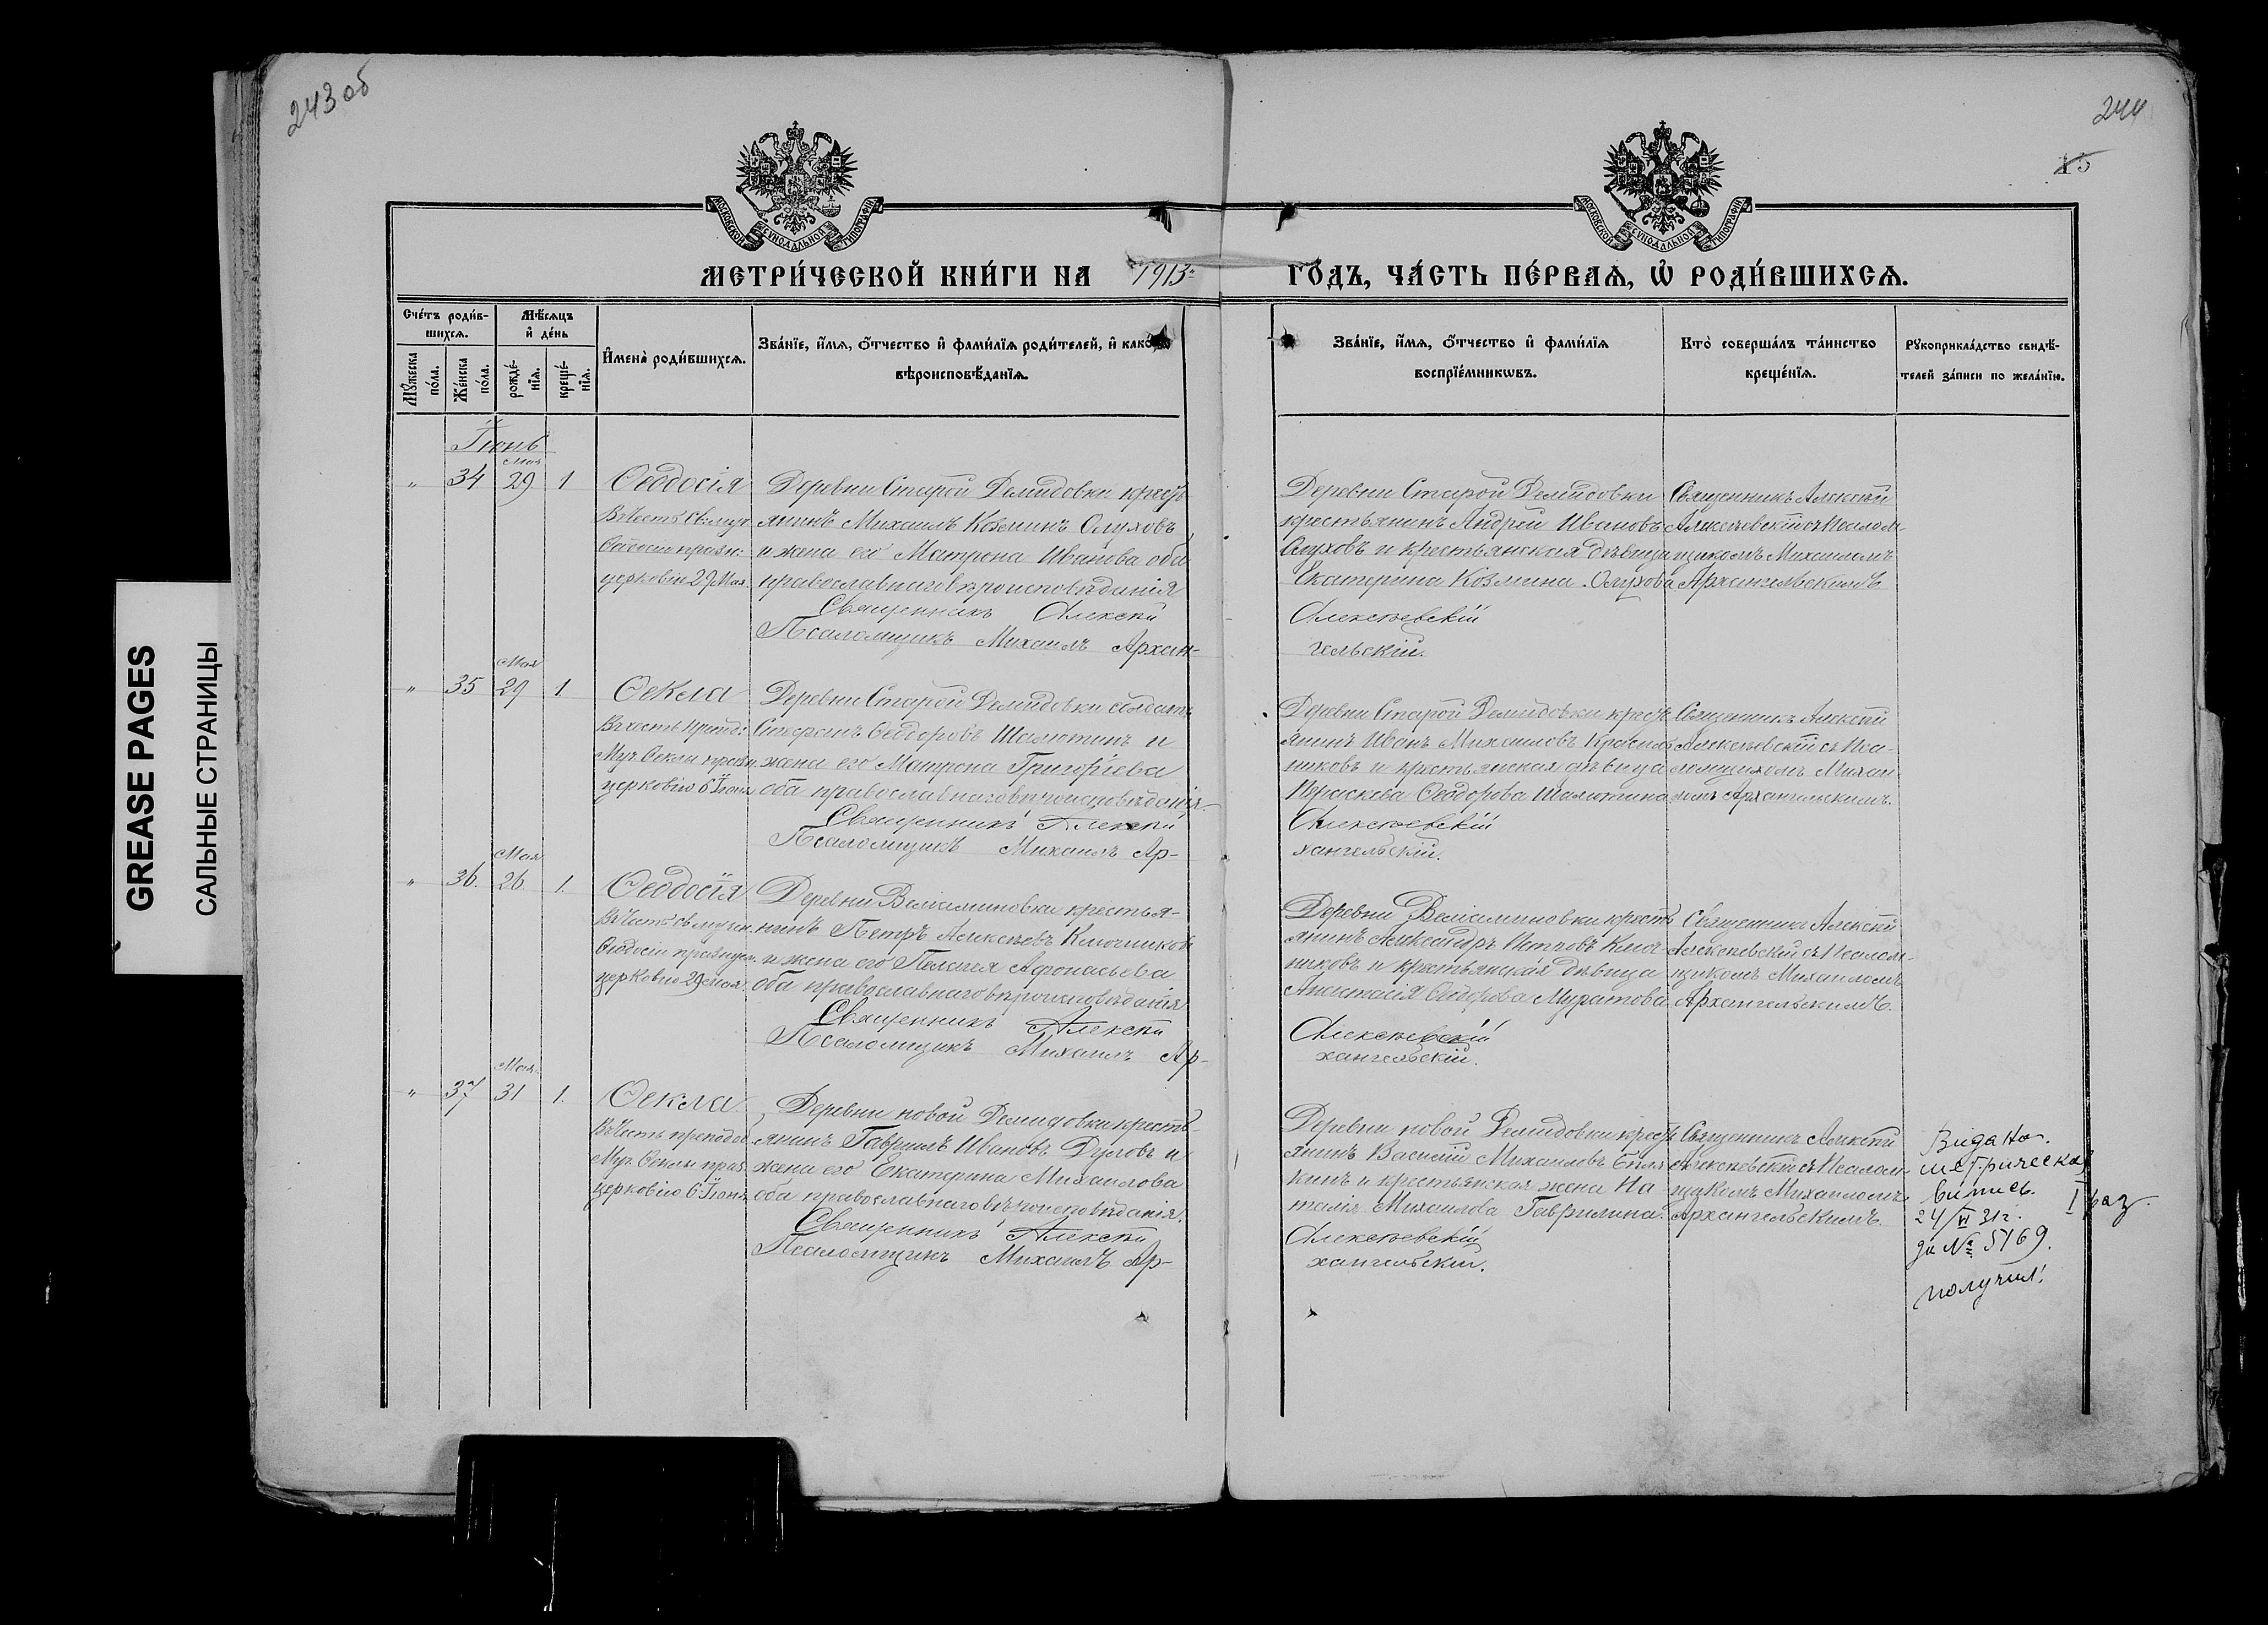 243 об
244
15
МОСКОВСКОЙ СУНОДАЛЬНОЙ ТИПОГРАФІИ
МОСКОВСКОЙ СУНОДАЛЬНОЙ ТИПОГРАФІИ
МЕТРИ́ЧЕСКОЙ КНИ́ГИ НА 1913 ГО́ДЪ, ЧА́СТЬ ПЕ́РВАѦ, Ѡ҆ РОДИ́ВШИХСѦ.
Сче́тъ роди́в-
шихсѧ.
Мꙋ́жеска по́ла.
Же́нска по́ла.
Мѣ́сѧцъ
и҆ де́нь
рожде́-
нїѧ.
креще́-
нїѧ.
И҆мена̀ роди́вшихсѧ.
Зва́нїе, и҆́мѧ, ѻ҆́тчество и҆ фами́лїѧ роди́телей, и҆ како́гѡ
вѣроисповѣ́данїѧ.
Зва́нїе, и҆́мѧ, ѻ҆́тчество и҆ фами́лїѧ
воспрїе́мникѡвъ.
Кто̀ соверша́лъ та́инство
креще́нїѧ.
Рꙋкоприкла́дство свидѣ́-
телей за́писи по жела́нїю.
Іюнь
Мая
" 34 29 1
Ѳеодосія
Въ честь Св. муч.
Ѳеодосіи праздн.
церковію 29 Мая.
Деревни Старой Демидовки кресть-
янинъ Михаилъ Козминъ Олуховъ
и жена его Матрона Иванова оба
православнаго вѣроисповѣданія
Священникъ Алексій
Псаломщикъ Михаилъ Архан-
Деревни Старой Демидовки
крестьянинъ Андрей Ивановъ
Олуховъ и крестьянская дѣвица
Екатерина Козмина Олухова
Алексѣевскій
гельскій.
Священникъ Алексѣй
Алексѣевскій съ Псалом-
щикомъ Михаиломъ
Архангельскимъ
Мая
" 35 29 1
Ѳекла
Въ честь Препод.
Муч. Ѳеклы празн.
церковію 6 Іюня
Деревни Старой Демидовки солдатъ
Стефанъ Ѳеодоровъ Шалютинъ и
жена его Матрона Григоріева
оба православнаго вѣроисповѣданія.
Священникъ Алексій
Псаломщикъ Михаилъ Ар-
Деревни Старой Демидовки кресть-
янинъ Иванъ Михаиловъ Красиль-
никовъ и крестьянская дѣвица
Параскева Ѳеодорова Шалютина
Алексѣевскій
хангельскій.
Священникъ Алексѣй
Алексѣевскій съ Пса-
ломщикомъ Михаи-
ломъ Архангельскимъ.
Мая
" 36. 26 1.
Ѳеодосія
Въ честь Св. мучен.
Ѳеодосіи празнуем.
церковію 29 Мая.
Деревни Веліаминовки крестья-
нинъ Петръ Алексѣевъ Ключниковъ
и жена его Пелагея Афонасьева
оба православнаго вѣроисповѣданія
Священникъ Алексій
Псаломщикъ Михаилъ Ар-
Деревни Веліаминовки кресть-
янинъ Александръ Петровъ Ключ-
никовъ и крестьянская дѣвица
Анастасія Ѳеодорова Муратова
Алексѣевскій
хангельскій.
Священникъ Алексѣй
Алексѣевскій съ Псалом-
щикомъ Михаиломъ
Архангельскимъ.
Мая.
" 37 31 1.
Ѳекла.
Въ честь преподоб.
Муч. Ѳеклы праз.
церковію 6 Іюня
Деревни новой Демидовки кресть-
янинъ Гавріилъ Ивановъ Дуловъ и
жена его Екатерина Михаилова
оба православнаго вѣроисповѣданія.
Священникъ Алексій
Псаломщикъ Михаилъ Ар-
Деревни новой Демидовки кресть-
янинъ Василий Михаиловъ Биля-
кинъ и крестьянская жена На-
талія Михаилова Гаврилина.
Алексѣевскій
хангельскій.
Священникъ Алексѣй
Алексѣевскій съ Псалом-
щикомъ Михаиломъ
Архангельскимъ
Видано.
метрическая
випись. I раз.
24/VI 31г.
за № 5169.
получил.
GREASE PAGES
САЛЬНЫЕ СТРАНИЦЫ